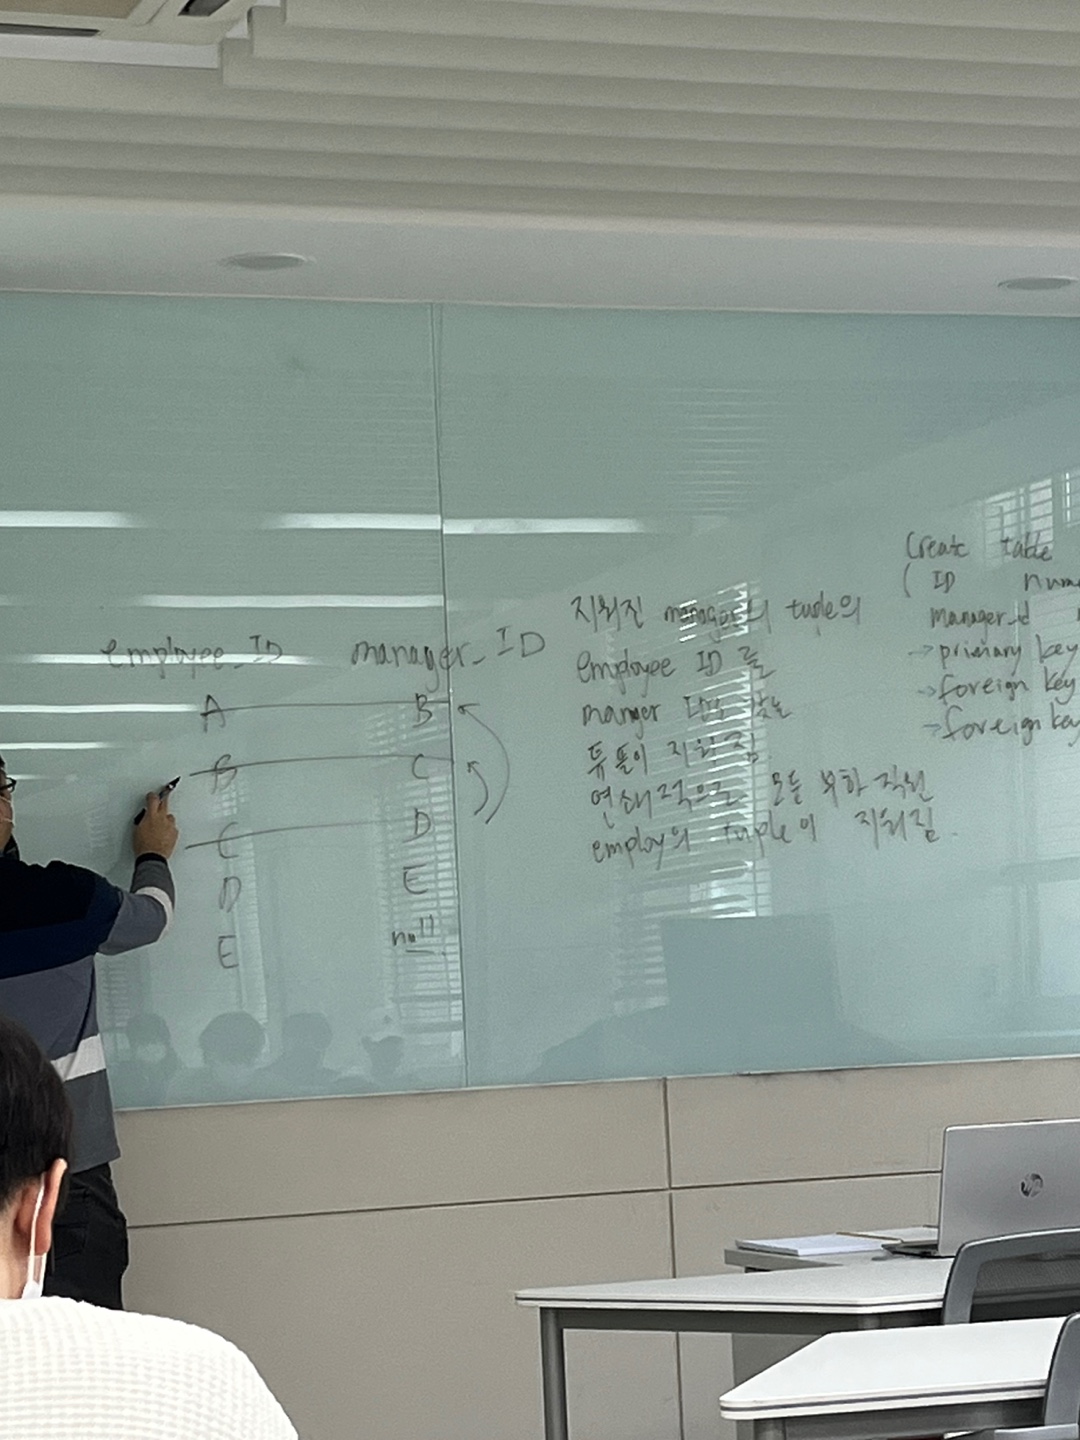 employee_ID manager_ID
A B
B C
C D
D E
E null
지워진 manager의 tuple의
employee ID를
manger ID로 갖는
튜플이 지워짐
연쇄적으로 모든 부하직원
employ의 tuple이 지워짐.
Create table
( ID
manager_id
→ primary key
→ foreign key
→ foreign key
hp